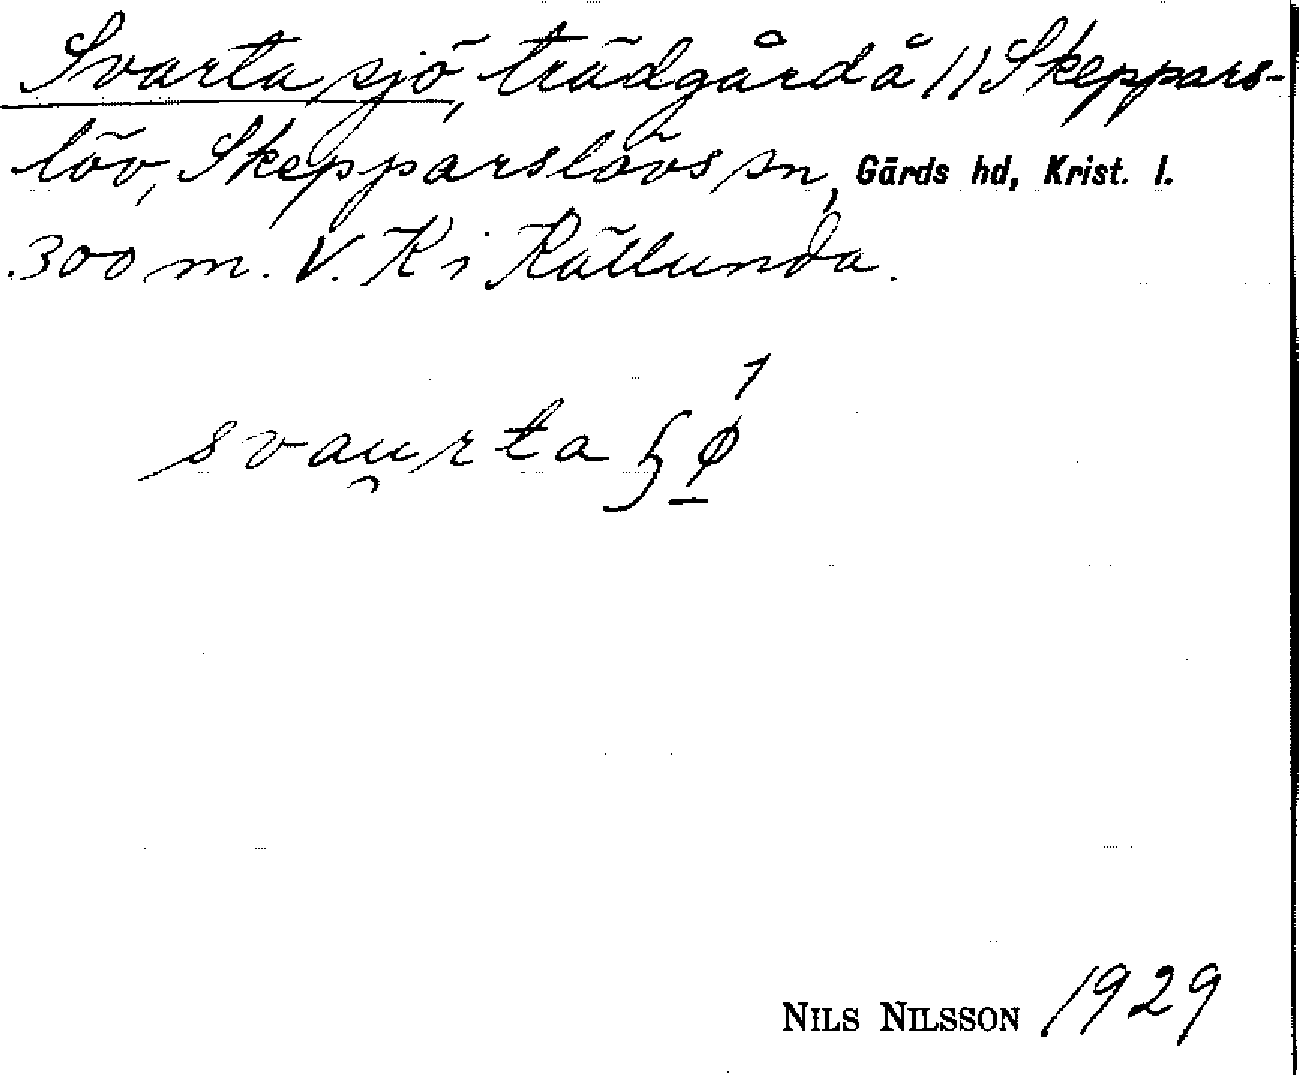 Svarta sjö, trädgård å 11 Skeppars-
löv, Skepparslövs sn, Gärds hd, Krist. l.
300 m. V. K i Källunda.
svau̯rta ɧǿ̠
NILS NILSSON 1929